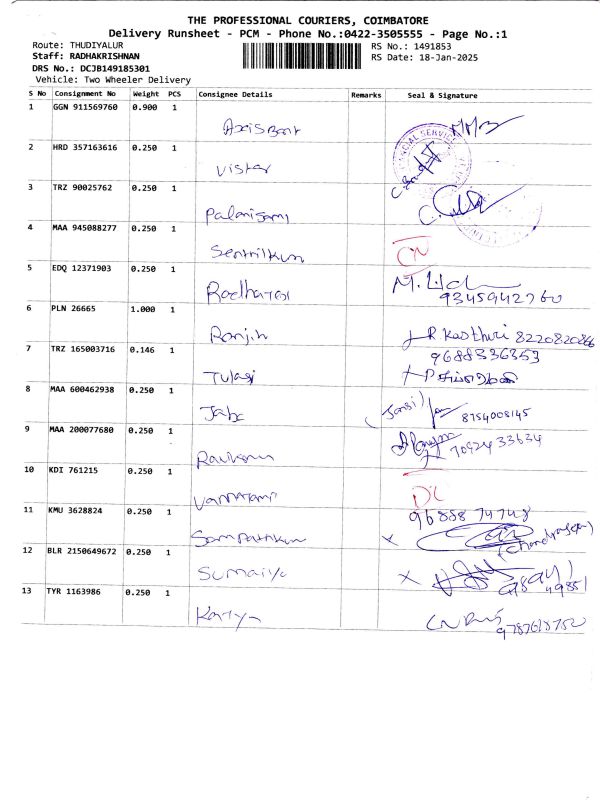 THE PROFESSIONAL COURIERS, COIMBATORE
Delivery Runsheet - PCM - Phone No.:0422-3505555 - Page No.:1
Route: THUDIYALUR RS No.: 1491853
Staff: RADHAKRISHNAN RS Date: 18-Jan-2025
DRS No.: DCJB149185301
Vehicle: Two Wheeler Delivery
S No Consignment No Weight PCS Consignee Details Remarks Seal & Signature
1 GGN 911569760 0.900 1
Axis Bank
2 HRD 357163616 0.250 1
Vistar
3 TRZ 90025762 0.250 1
Palanisami
4 MAA 945088277 0.250 1
Senthilkum CN
5 EDQ 12371903 0.250 1
9345942760
6 PLN 26665 1.000 1
Ranjith R Kasthuri 8220820866
7 TRZ 165003716 0.146 1 9688336353
Tulasi
8 MAA 600462938 0.250 1
Jaba (Jansi) 8754008145
9 MAA 200077680 0.250 1
7092433634
10 KDI 761215 0.250 1
DL
11 KMU 3628824 0.250 1 96888 74748
Sampathkum
12 BLR 2150649672 0.250 1
Sumaiya
13 TYR 1163986 0.250 1
9787618752